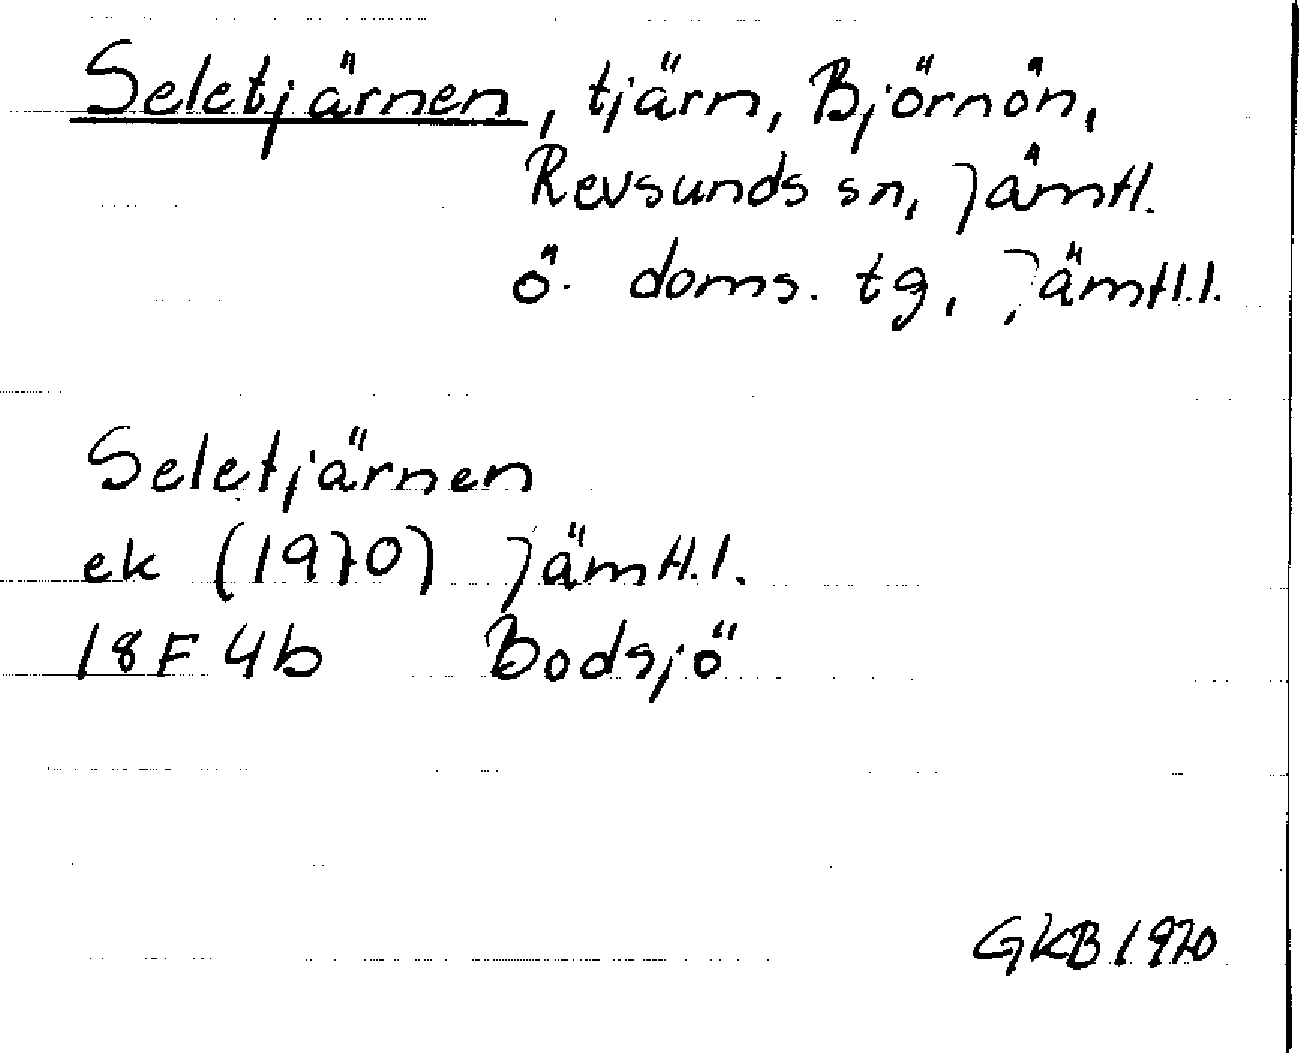 Seletjärnen, tjärn, Björnön,
Revsunds sn, Jämtl.
ö. doms. tg, Jämtl.l.
Seletjärnen
ek (1970) Jämtl.l.
18F 4b Bodsjö
GKB 1970